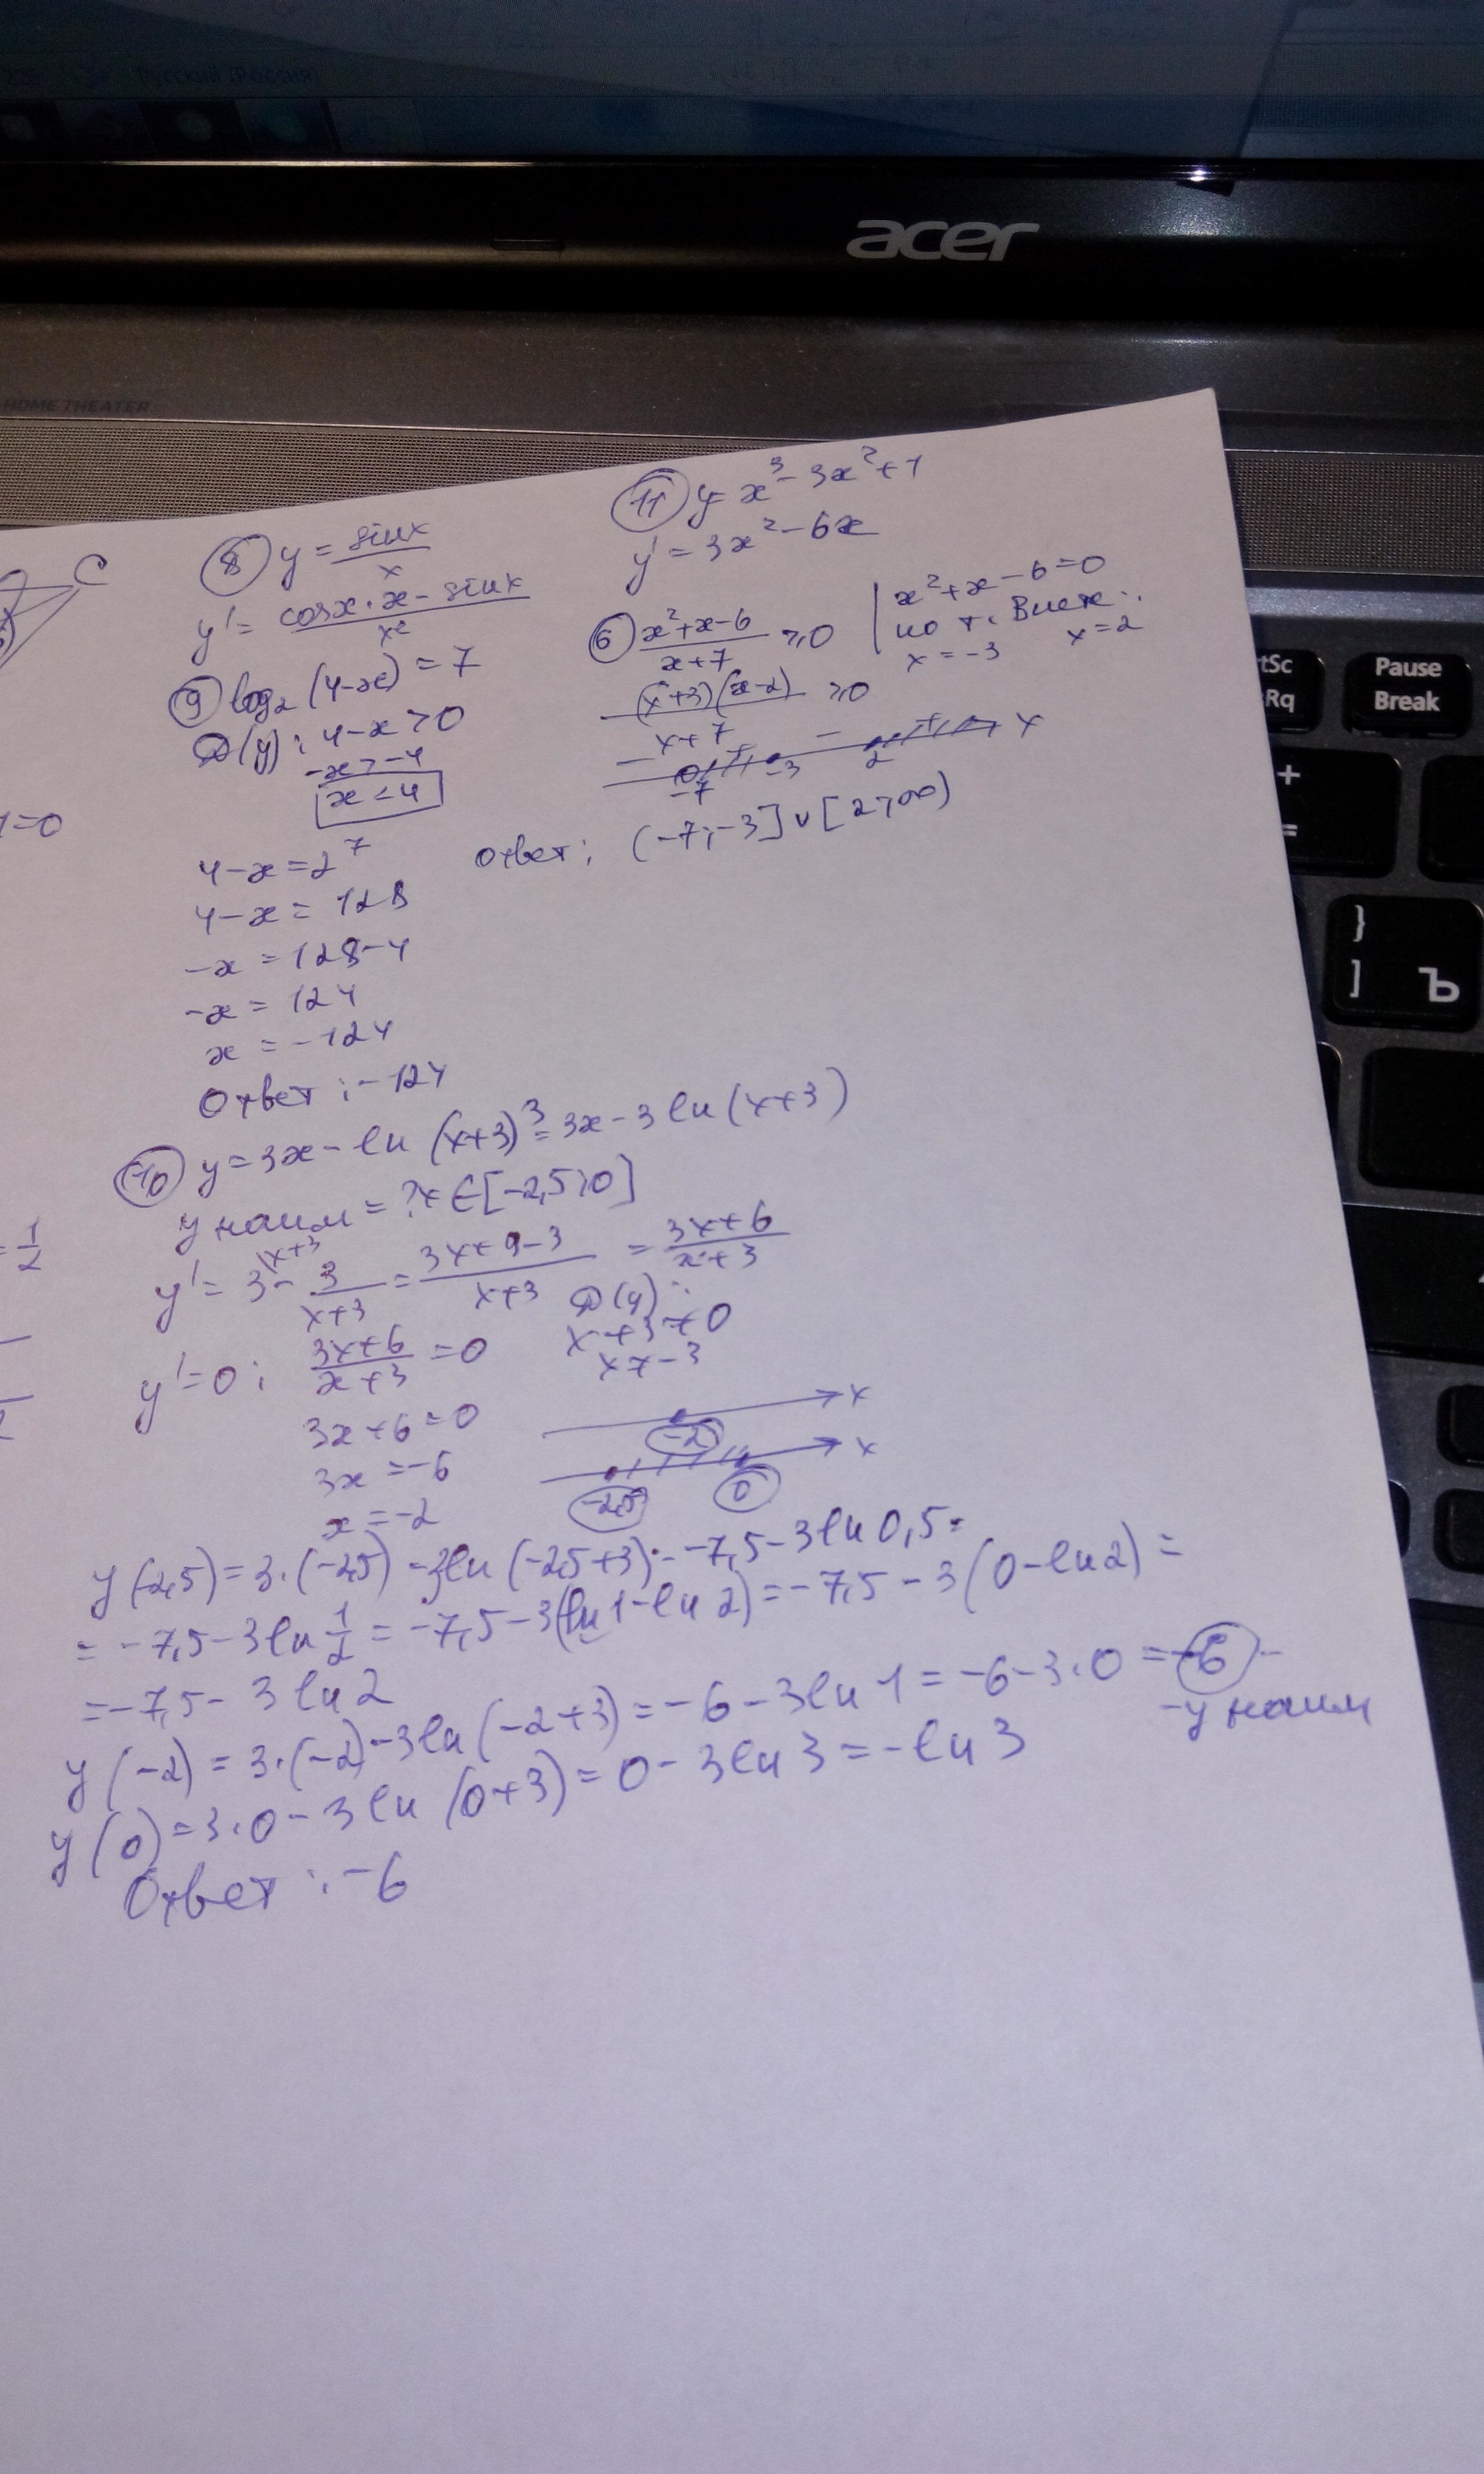 Русский (Россия)
acer
HOME THEATER
Pause
Break
+
=
}
]
Ъ
C
=0
= 1/2
⑧ y = sinx/x
y' = (cosx·x - sinx)/x²
⑨ log₂(4-x) = 7
D(y): 4-x>0
-x>-4
x<4
4-x=2⁷
4-x=128
-x=128-4
-x=124
x=-124
Ответ: -124
⑪ y=x³-3x²+1
y'=3x²-6x
⑥ (x²+x-6)/(x+7) ≥0
x²+x-6=0
по т. Виета:
x=-3 x=2
((x+3)(x-2))/(x+7) ≥0
- + - + x
-7 -3 2
Ответ: (-7;-3]∪[2;∞)
⑩ y=3x-ln(x+3)³=3x-3ln(x+3)
y наим=? x∈[-2,5;0]
y'=3\x+3 - 3/(x+3) = (3x+9-3)/(x+3) = (3x+6)/(x+3)
D(y):
x+3≠0
x≠-3
y'=0: (3x+6)/(x+3)=0
3x+6=0
3x=-6
x=-2
x
-2
x
-2,5 0
y(-2,5)=3·(-2,5)-3ln(-2,5+3)=-7,5-3ln0,5=
=-7,5-3ln 1/2=-7,5-3(ln1-ln2)=-7,5-3(0-ln2)=
=-7,5-3ln2
y(-2)=3·(-2)-3ln(-2+3)=-6-3ln1=-6-3·0=-6-
-y наим
y(0)=3·0-3ln(0+3)=0-3ln3=-ln3
Ответ: -6